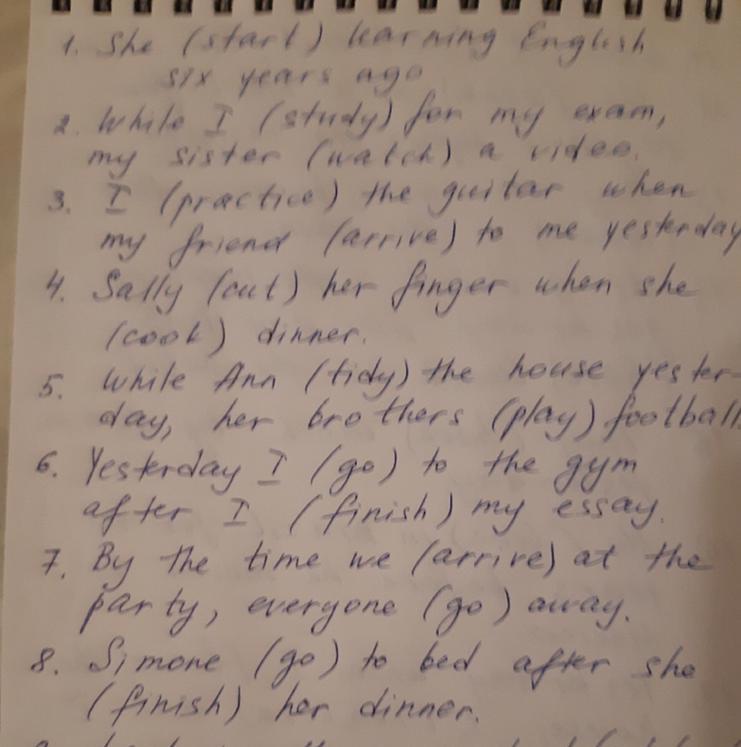 1. She (start) learning English
six years ago
2. While I (study) for my exam,
my sister (watch) a video.
3. I (practice) the guitar when
my friend (arrive) to me yesterday
4. Sally (cut) her finger when she
(cook) dinner.
5. While Ann (tidy) the house yester-
day, her brothers (play) football.
6. Yesterday I (go) to the gym
after I (finish) my essay.
7. By the time we (arrive) at the
party, everyone (go) away.
8. Simone (go) to bed after she
(finish) her dinner.